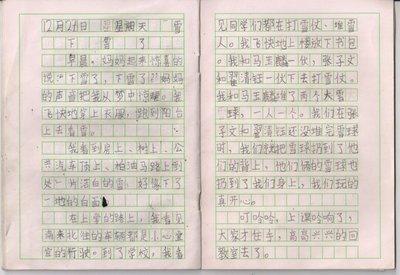 12月21日 星期天 雪
下雪了
早晨，妈妈起来惊喜的
说："下雪了，下雪了！"妈妈
的声音把我从梦中惊醒。我
飞快地穿上衣服，跑到阳台
上去看雪。
我看到房上、树上、公
共汽车顶上、柏油马路上到
处一片洁白的雪，好像下了
一地的白面。
在上学的路上，我看见
南来北往的车辆都是小心
的行驶。到了学校，我看
见同学们都在打雪仗、堆雪
人。我飞快地上楼放下书包。
我和王麟一伙，张子文
和翟清钰一伙下去打雪仗。
我和马王麟堆了两个大雪
球，一人一个。我们在张
子文和翟清钰还没堆完雪球
时，我们就把雪球扔到了他
们的背上，他们俩的雪球也
扔到了我们身上，我们玩的
真开心。
叮呤呤，上课呤响了，
大家才住手，高高兴兴的回
教室去了。